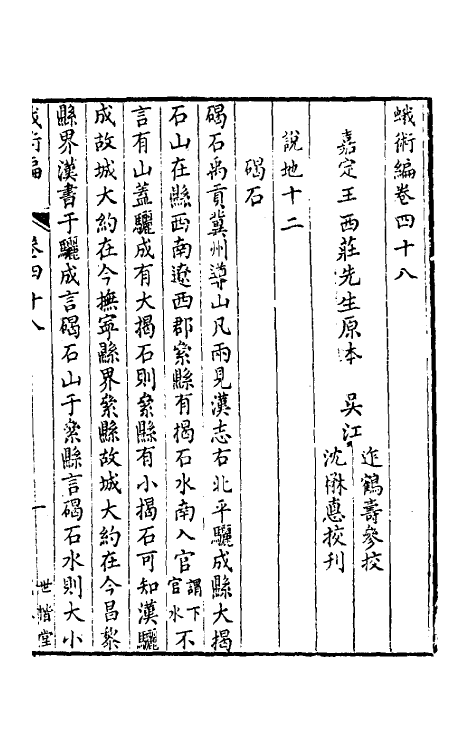 蛾術編卷四十八
嘉定王西莊先生原本　吴江
迮鶴壽參挍
沈楙悳挍刊
說地十二
碣石
碣石禹貢冀州導山凡兩見漢志右北平驪成縣大揭
石山在縣西南遼西郡絫縣有揭石水南入官謂下官水不
言有山蓋驪成有大揭石則絫縣有小揭石可知漢驪
成故城大約在今撫寧縣界絫縣故城大約在今昌黎
縣界漢書于驪成言碣石山于絫縣言碣石水則大小
蛾術編
卷四十八
一
世楷堂